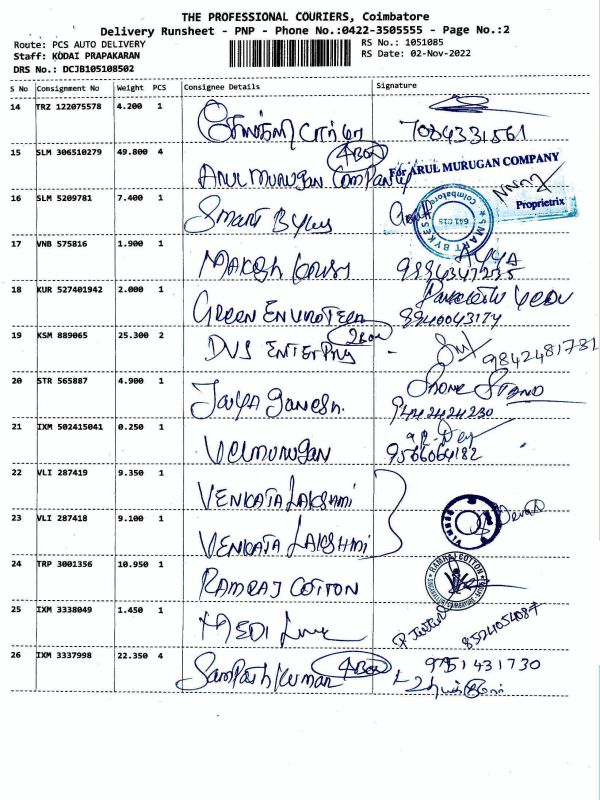 THE PROFESSIONAL COURIERS, Coimbatore
Delivery Runsheet - PNP - Phone No.:0422-3505555 - Page No.:2
Route: PCS AUTO DELIVERY
RS No.: 1051085
Staff: KODAI PRAPAKARAN
RS Date: 02-Nov-2022
DRS No.: DCJB105108502
S No Consignment No Weight PCS Consignee Details Signature
14 TRZ 122075578 4.200 1
15 SLM 306510279 49.800 4 4 Box
For ARUL MURUGAN COMPANY
ARUL MURUGAN Company
Proprietrix
16 SLM 5209781 7.400 1
Smart Bykes
SMART BYKES Coimbatore
17 VNB 575816 1.900 1
18 KUR 527401942 2.000 1
GREEN ENVIROTECH 8940043174
19 KSM 889065 25.300 2 2 Box
DVS ENTERPRIS - 9842481731
20 STR 565887 4.900 1
Jaya Ganesh. 9442424230
21 IXM 502415041 0.250 1
Velmurugan 9566064182
22 VLI 287419 9.350 1
VENKATA LAKSHMI
23 VLI 287418 9.100 1
VENKATA LAKSHMI
24 TRP 3001356 10.950 1
RAMRAJ COTTON
RAMRAJ COTTON
25 IXM 3338049 1.450 1
MEDI 8524054087
26 IXM 3337998 22.350 4 4 Box
Sampath Kumar 9751431730